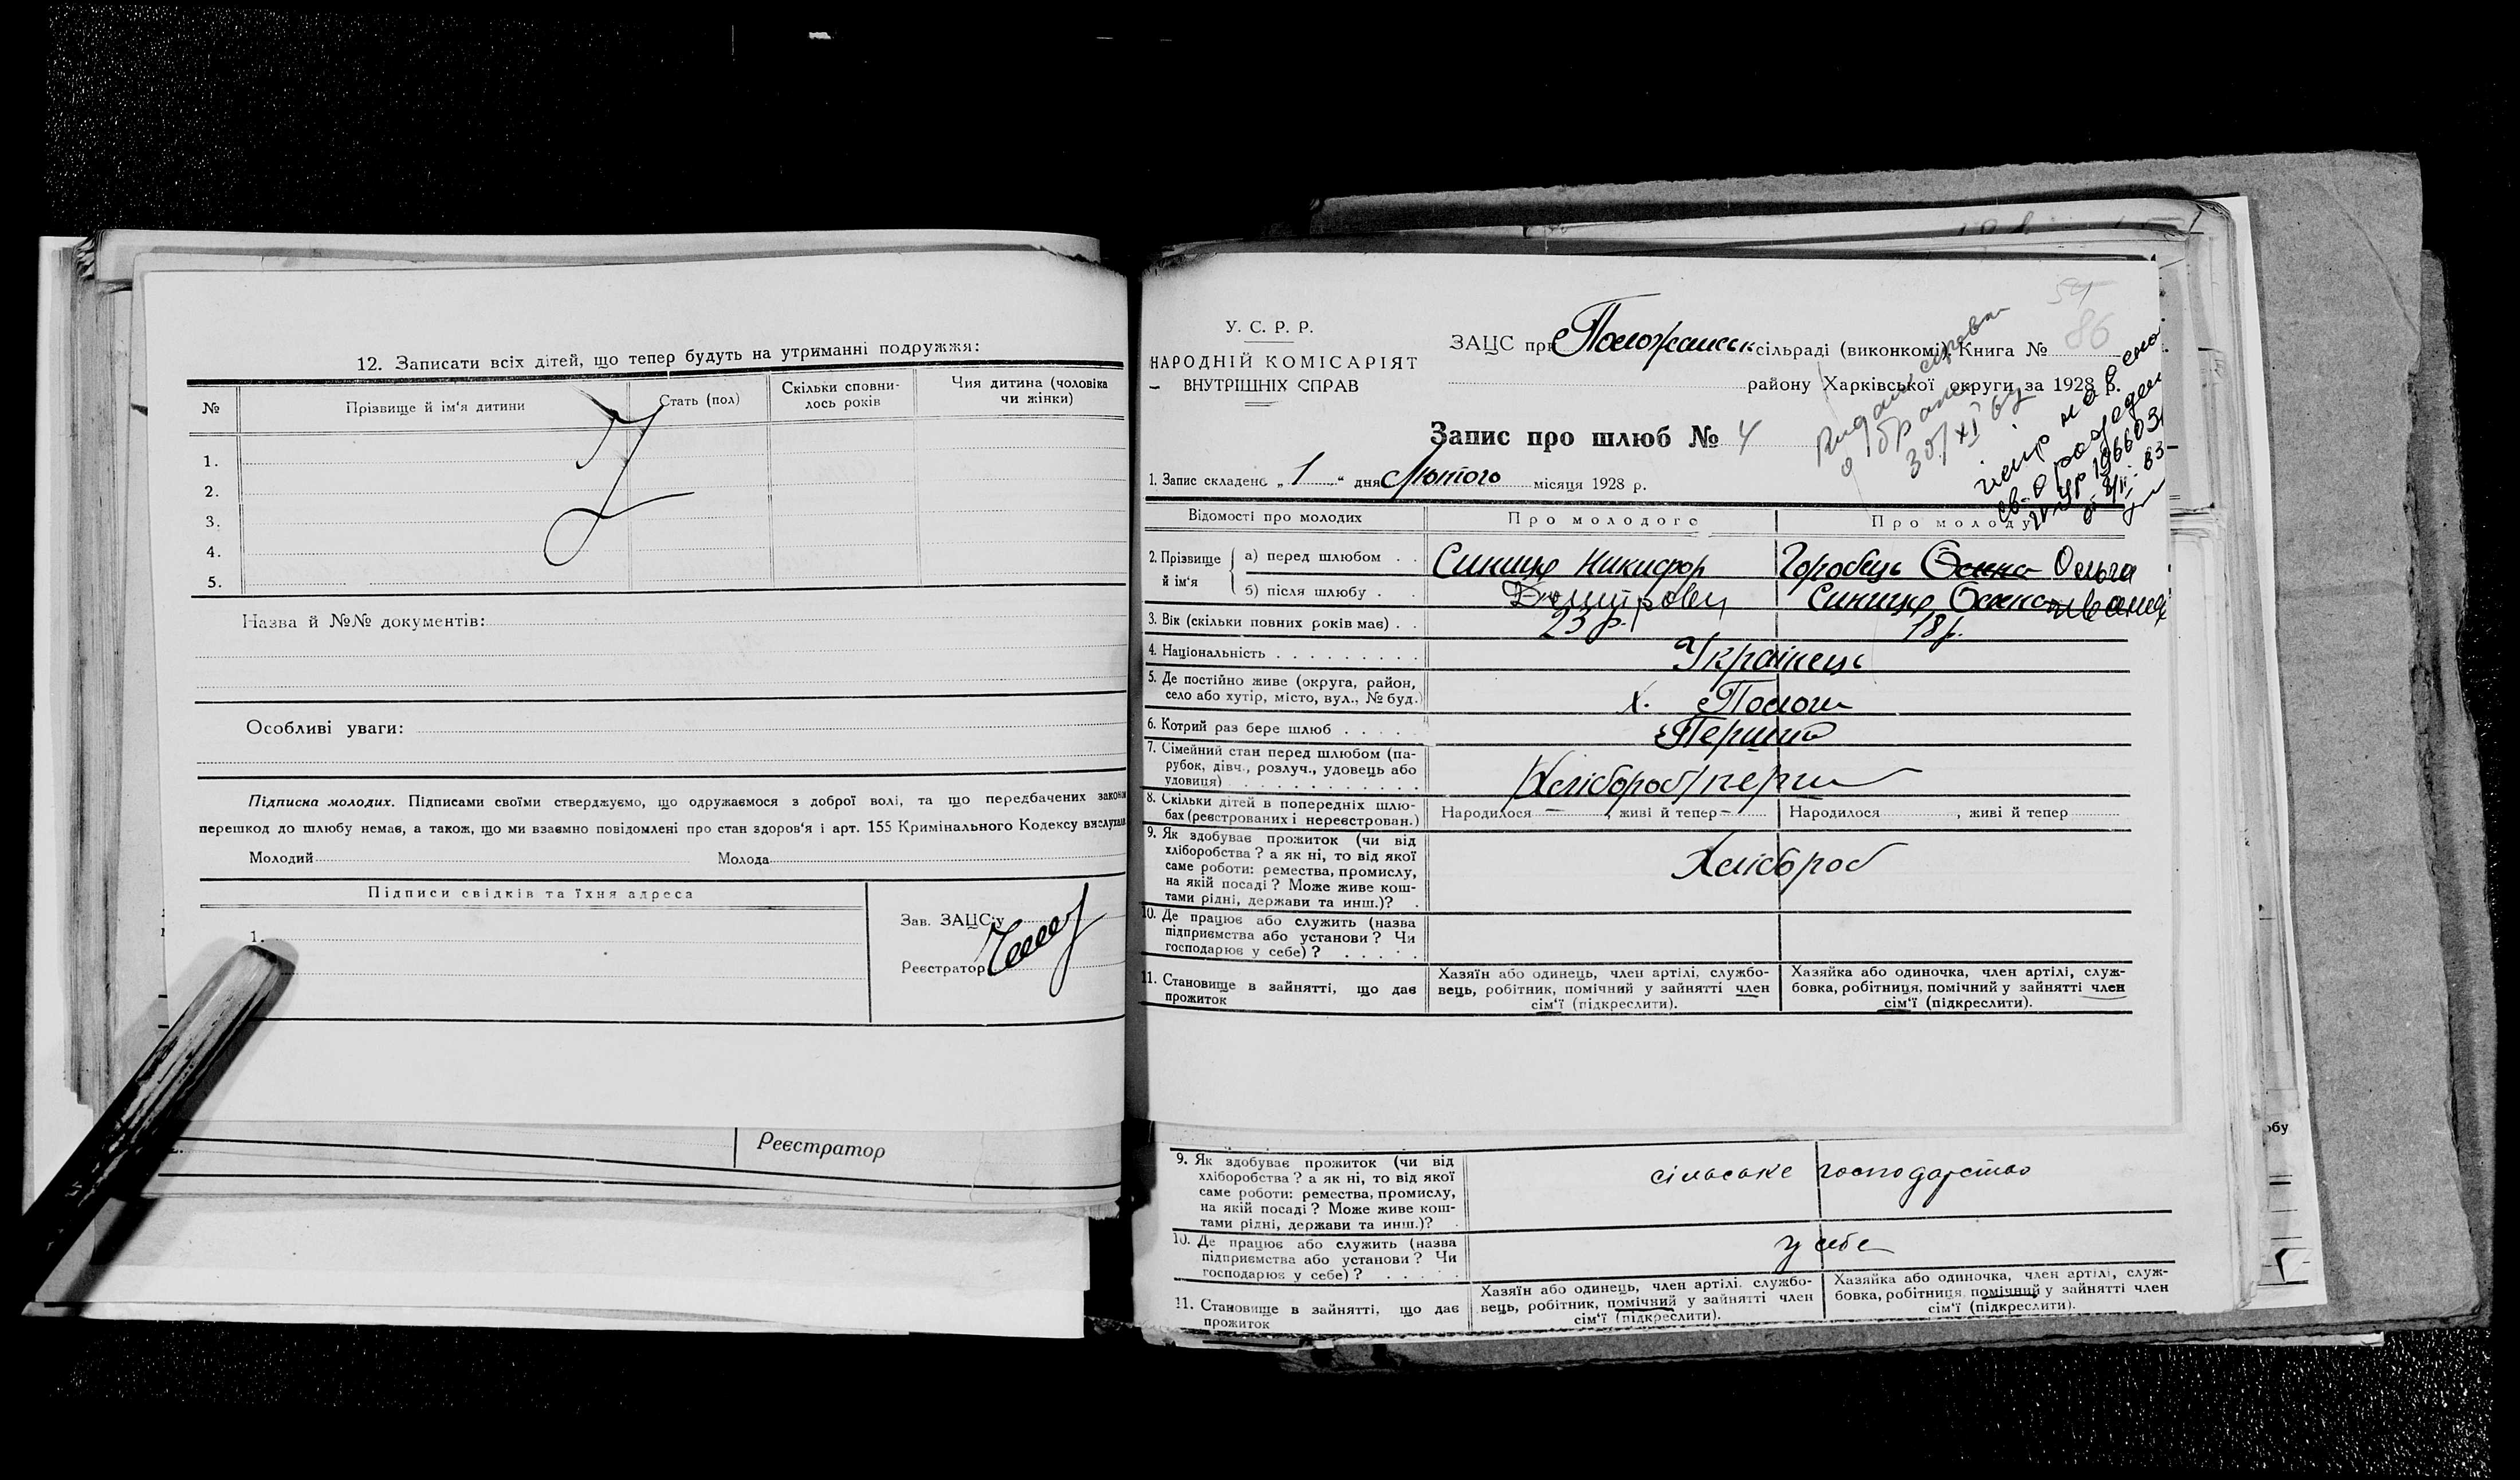 12. Записати всіх дітей, що тепер будуть на утриманні подружжя:
№ Прізвище й ім'я дитини Стать (пол) Скільки сповни- Чия дитина (чоловіка
лось років чи жінки)
1.
2.
3.
4.
5.
Назва й №№ документів:
Особливі уваги:
Підписка молодих. Підписами своїми стверджуємо, що одружаємося з доброї волі, та що передбачених законом
перешкод до шлюбу немає, а також, що ми взаємно повідомлені про стан здоров'я і арт. 155 Кримінального Кодексу вислухали
Молодий Молода
Підписи свідків та їхня адреса
Зав. ЗАЦС'у
1.
Реєстратор
Реєстратор
У. С. Р. Р.
НАРОДНІЙ КОМІСАРІЯТ
ВНУТРІШНІХ СПРАВ
54
86
ЗАЦС при Положанськ сільраді (виконкомі) Книга №
району Харківської округи за 1928 р.
Запис про шлюб № 4
1. Запис складено „ 1 “ дня Лютого місяця 1928 р.
Відомості про молодих Про молодого Про молоду
2. Прізвище й ім'я а) перед шлюбом Синиця Никифор Горобець Ольга
б) після шлюбу Синиця
3. Вік (скільки повних років має) 23 р. 18 р.
4. Національність Українець
5. Де постійно живе (округа, район,
село або хутір, місто, вул., № буд.) х. Пологи
6. Котрий раз бере шлюб Перший
7. Сімейний стан перед шлюбом (па-
рубок, дівч., розлуч., удовець або
удовиця) Хлібороб
8. Скільки дітей в попередніх шлю- Народилося – , живі й тепер – Народилося , живі й тепер
бах (реєстрованих і нереєстрован.)
9. Як здобуває прожиток (чи від
хліборобства? а як ні, то від якої
саме роботи: ремества, промислу, Хлібороб
на якій посаді? Може живе кош-
тами рідні, держави та инш.)?
10. Де працює або служить (назва
підприємства або установи? Чи
господарює у себе)?
11. Становище в зайнятті, що дає
прожиток
Хазяїн або одинець, член артілі, службо-
вець, робітник, помічний у зайнятті член
сім'ї (підкреслити).
Хазяйка або одиночка, член артілі, служ-
бовка, робітниця, помічний у зайнятті член
сім'ї (підкреслити).
9. Як здобуває прожиток (чи від
хліборобства? а як ні, то від якої сільське господарство
саме роботи: ремества, промислу,
на якій посаді? Може живе кош-
тами рідні, держави та инш.)?
10. Де працює або служить (назва
підприємства або установи? Чи у себе
господарює у себе)?
11. Становище в зайнятті, що дає
прожиток
Хазяїн або одинець, член артілі, службо-
вець, робітник, помічний у зайнятті член
сім'ї (підкреслити).
Хазяйка або одиночка, член артілі, служ-
бовка, робітниця, помічний у зайнятті член
сім'ї (підкреслити).